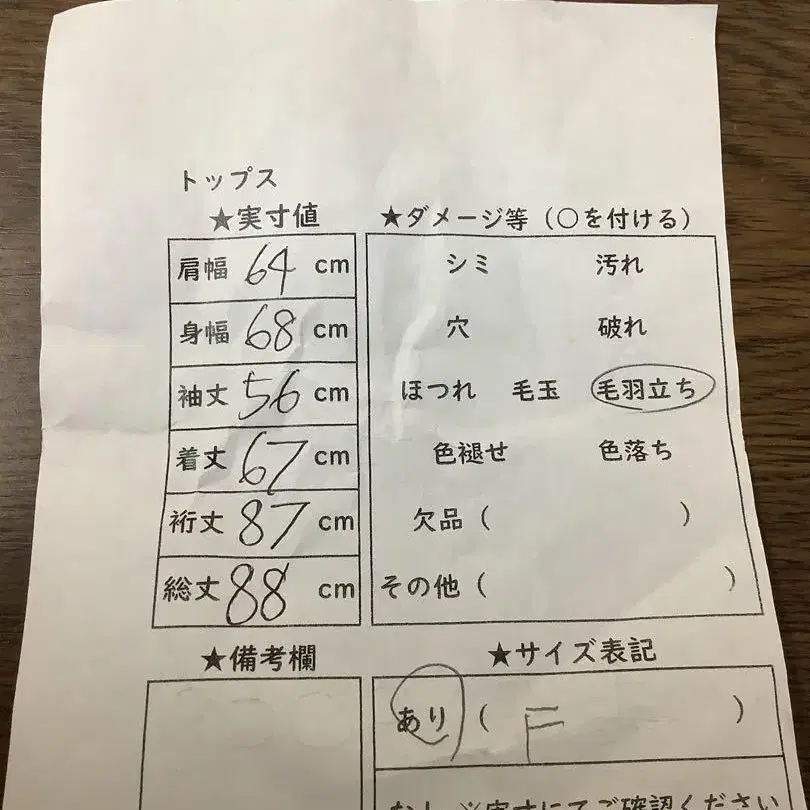 トップス
★実寸値
肩幅 64 cm
身幅 68 cm
袖丈 56 cm
着丈 67 cm
裄丈 87 cm
総丈 88 cm
★ダメージ等（○を付ける）
シミ 汚れ
穴 破れ
ほつれ 毛玉 毛羽立ち
色褪せ 色落ち
欠品（ ）
その他（ ）
★備考欄
★サイズ表記
あり（ F ）
なし ※実寸にてご確認ください